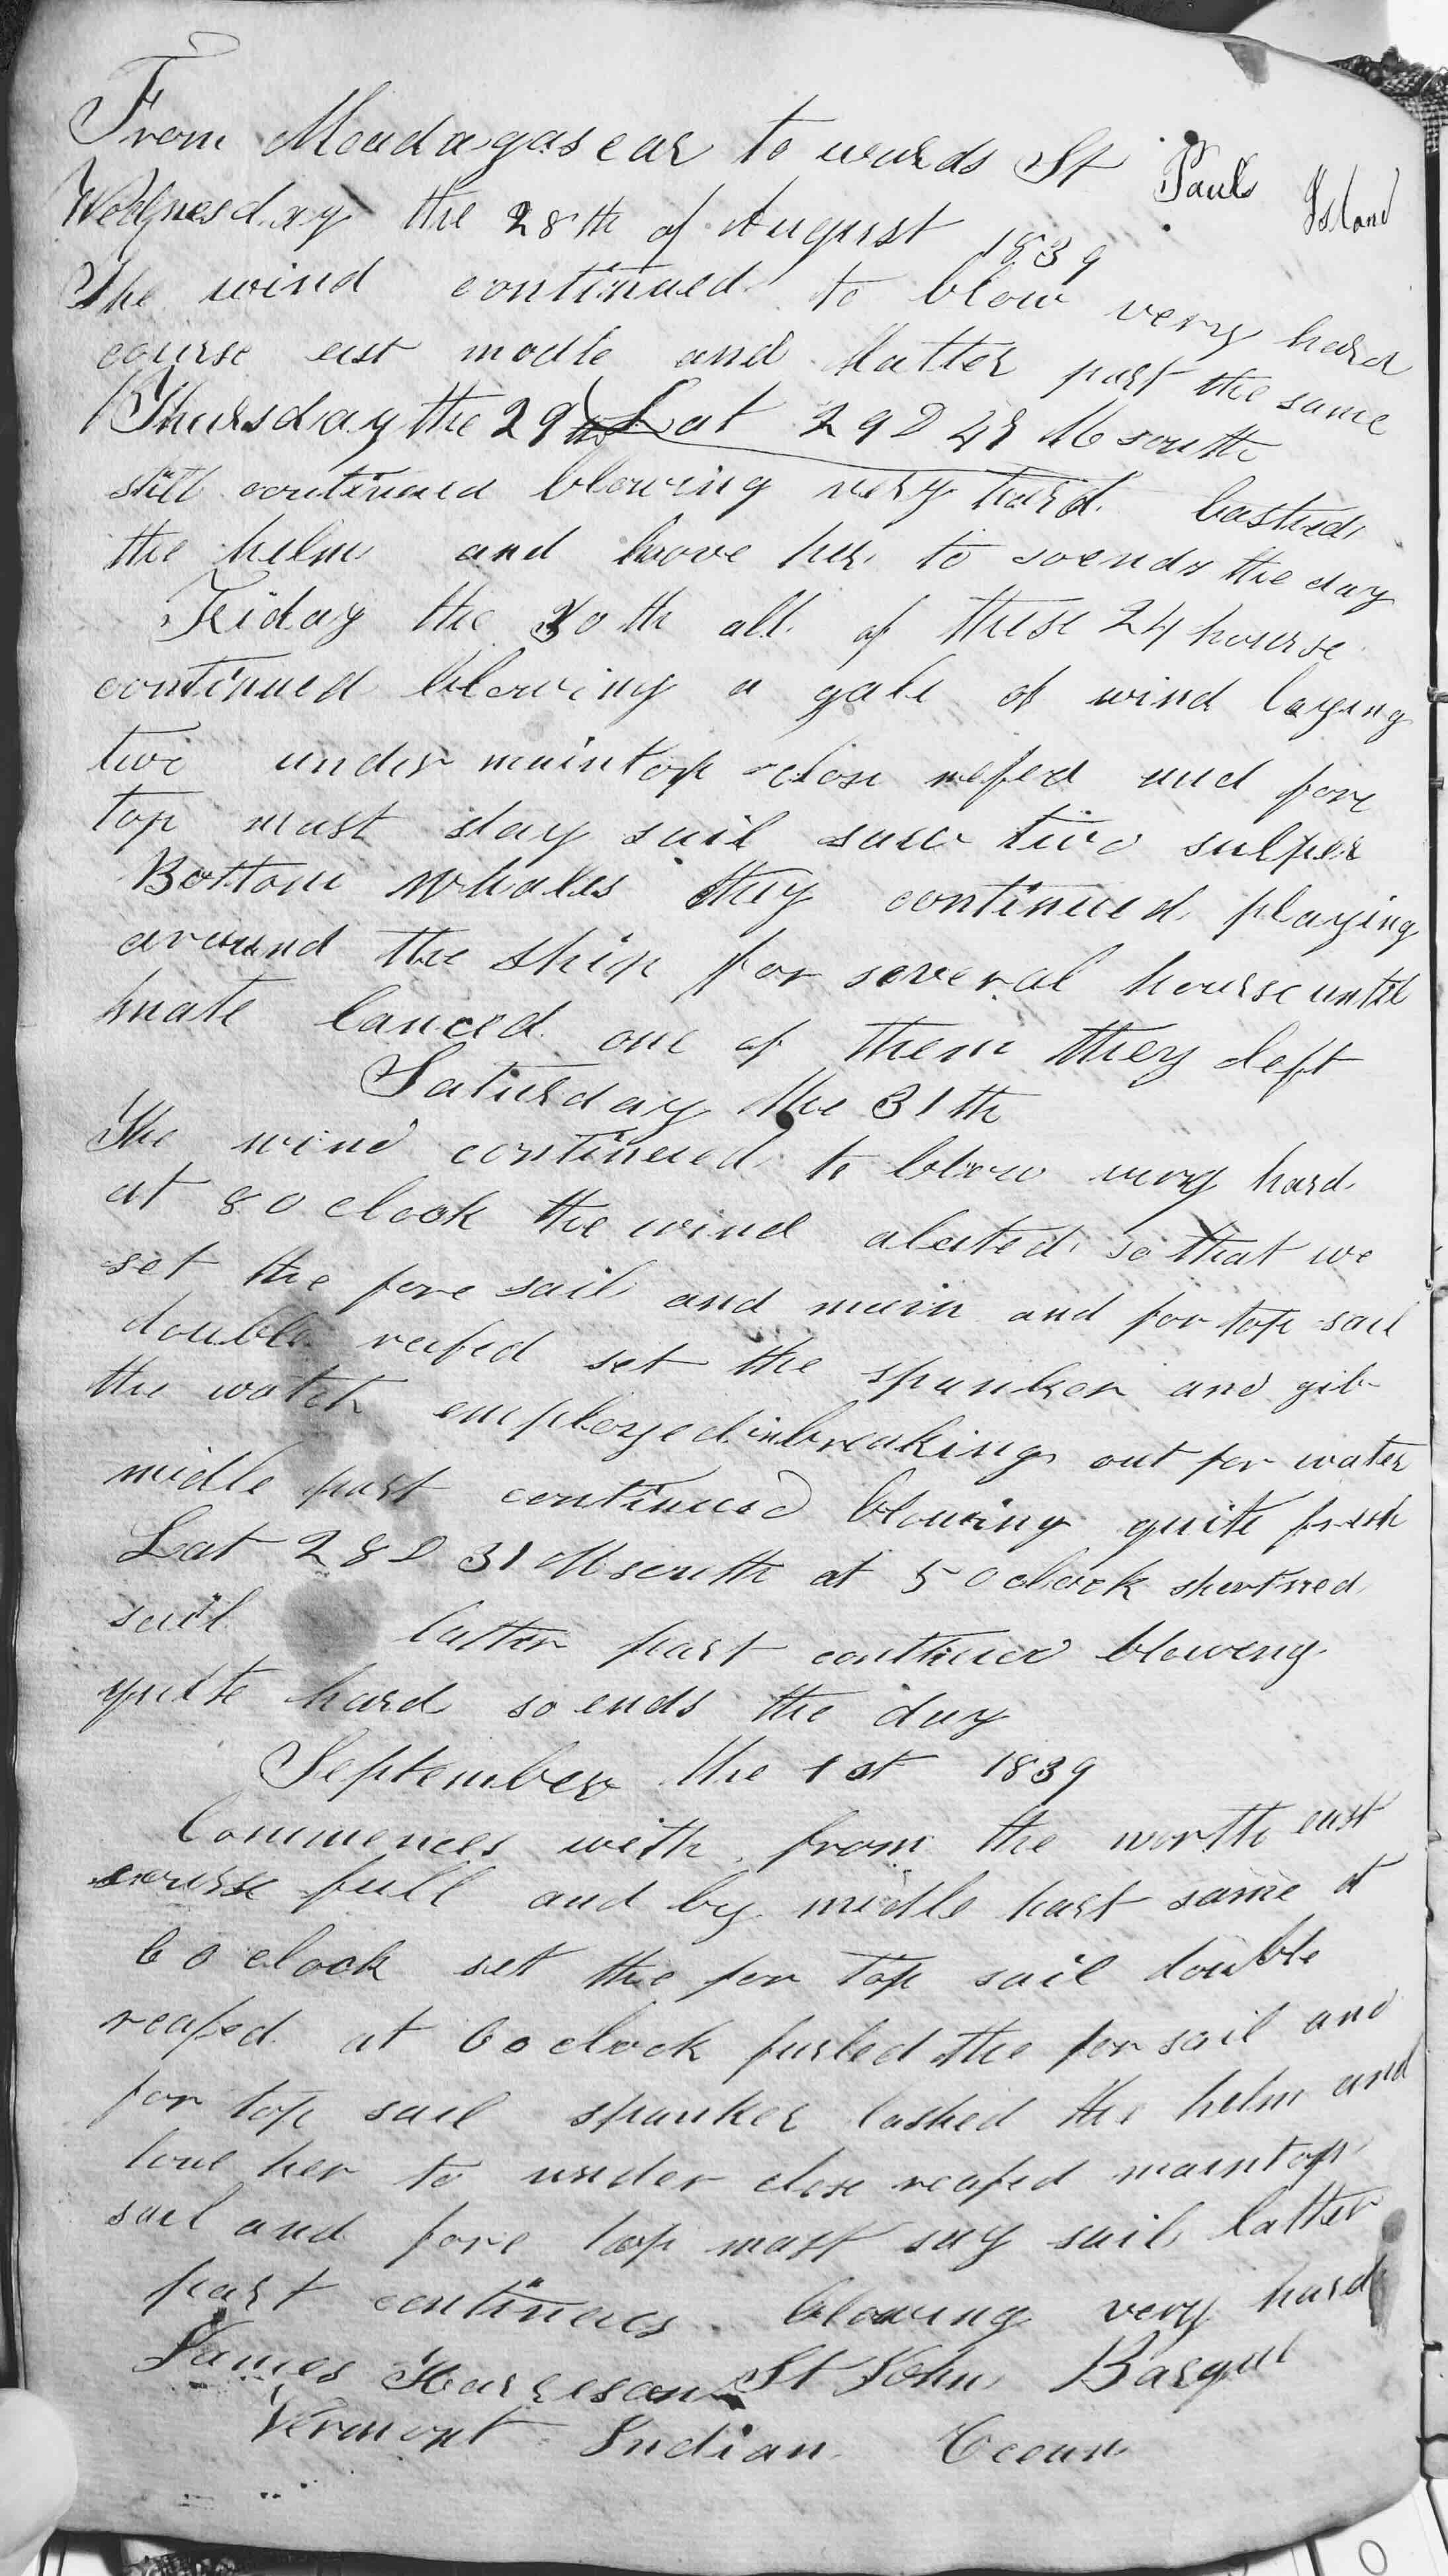 From Meadagascar to wards St Pauls Island
Wednesday the 28th of August 1839
The wind continued to blow very hard
course est modle and latter part the same
Thursday the 29th Lat 29 D 48 M south
still continued blowing very hard lashed
the helm and hove her to soends the day
Friday the 30th all of these 24 hourse
continued blowing a gale of wind laying
two under maintop close refed and fore
top mast stay sail saw two sulper
Bottom whales they continued playing
around the ship for several hourse until
mate lanced one of them they left
Saturday the 31th
The wind continued to blow very hard
at 8 o clock the wind abated so that we
set the fore sail and main and for top sail
double reefed set the spanker and gib
the watch employed in breaking out for water
midle part continued blowing quite fresh
Lat 28 D 31 M south at 5 o clock shortned
sail latter part continued blowing
quite hard so ends the day
September the 1st 1839
Commences with from the north east
course full and by midle part same at
6 o clock set the for top sail double
reafed at 6 o clock furled the for sail and
for top sail spanker lashed the helm and
hove her to under close reafed maintop
sail and fore top mast say sail latter
part continues blowing very hard
James Harreson St John Barque
Vermont Indian Ocean